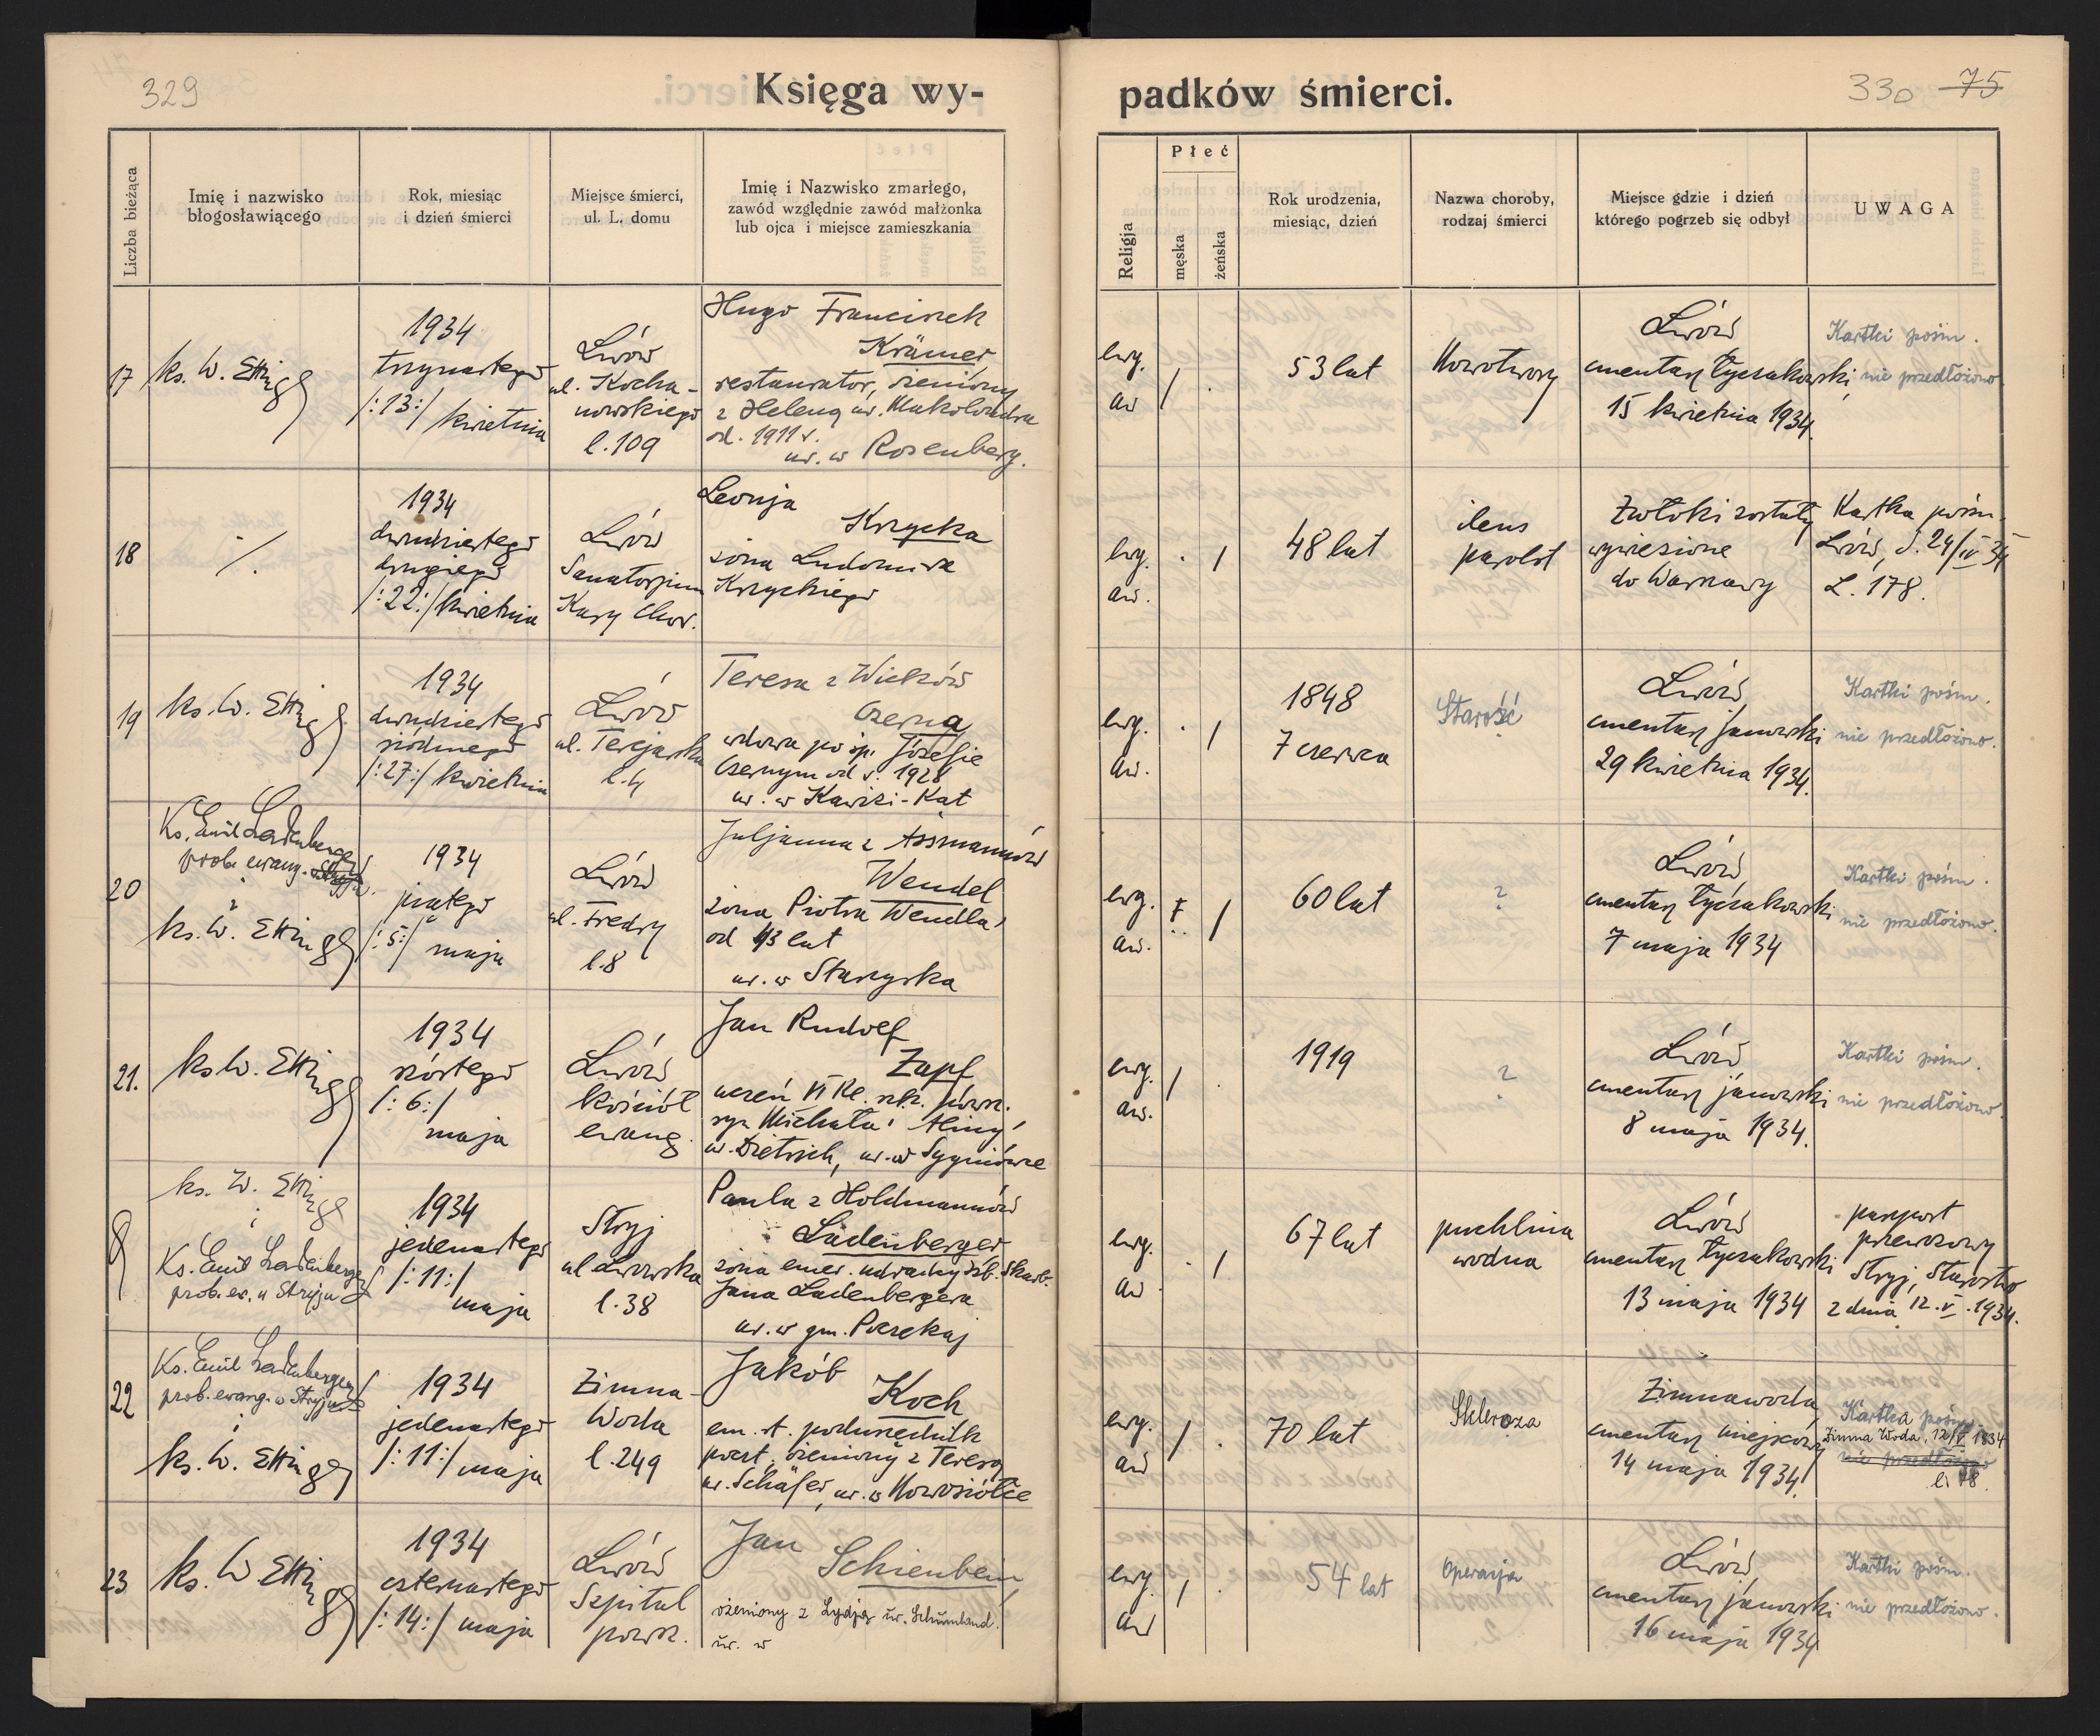 329
Księga wy-
padków śmierci.
330 75
Liczba bieżąca
Imię i nazwisko
błogosławiącego
Rok, miesiąc
i dzień śmierci
Miejsce śmierci,
ul. L. domu
Imię i Nazwisko zmarłego,
zawód względnie zawód małżonka
lub ojca i miejsce zamieszkania
Religja
Płeć
męska
żeńska
Rok urodzenia,
miesiąc, dzień
Nazwa choroby,
rodzaj śmierci
Miejsce gdzie i dzień
którego pogrzeb się odbył
UWAGA
17
ks. W. Ettinger
1934
trzynastego
/:13:/ kwietnia
Lwów
ul. Kocha-
nowskiego
l. 109
Hugo Franciszek
Krämer
restaurator, żeniony
z Heleną ur. Mukolondra
od. 1911 r.
ur. w Rosenberg.
ewg.
aw
/ .
53 lat
Nowotwory
Lwów
cmentarz Łyczakowski
15 kwietnia 1934.
Kartki pośm.
nie przedłożono.
18
./.
1934
dwudziestego
drugiego
/:22:/ kwietnia
Lwów
Sanatorjum
Kasy Chor.
Leonja
Krzycka
żona Ludomira
Krzyckiego
ewg.
aw.
. /
48 lat
ileus
paralyt
Zwłoki zostały
wywiezione
do Warszawy
Kartka pośm.
Lwów, d. 24/IV 34
L. 178.
19
ks. W. Ettinger
1934
dwudziestego
siódmego
/:27:/ kwietnia
Lwów
ul. Terejarska
l. 4
Teresa z Wieków
Czerny
wdowa po śp. Józefie
Czernym od r. 1928
ur. w Kawizi-Kąt
ewg.
aw.
. /
1848
7 czerwca
Starość
Lwów
cmentarz janowski
29 kwietnia 1934.
Kartki pośm.
nie przedłożono.
20
Ks. Emil Ladenberger
prob. ewang.
i
ks. W. Ettinger
1934
piątego
/:5:/ maja
Lwów
ul. Fredry
l. 8
Juljanna z Assmannów
Wendel
żona Piotra Wendla
od 43 lat
ur. w Starzyska
ewg.
aw.
/
60 lat
?
Lwów
cmentarz Łyczakowski
7 maja 1934
Kartki pośm.
nie przedłożono.
21.
ks W. Ettinger
1934
szóstego
/:6:/
maja
Lwów
kościół
ewang.
Jan Rudolf
Zapf
uczeń VI kl. szk. powsz.
syn Michała i Aliny
ur. Dietrich, ur. w Sygniówce
ewg.
aw.
/ .
1919
?
Lwów
cmentarz janowski
8 maja 1934.
Kartki pośm.
nie przedłożono.
ks. W. Ettinger
i
Ks. Emil Ladenberger
prob. ew. w Stryju
1934
jedenastego
/:11:/
maja
Stryj
ul Lwowska
l. 38
Paula z Holdmannów
Ladenberger
żona emer. Izb. Skarb.
Jana Ladenbergera
ur. w gm. Porzekaj
ewg.
aw
. /
67 lat
puchlina
wodna
Lwów
cmentarz Łyczakowski
13 maja 1934
paszport
przewozowy
Stryj, Starostwo
z dnia 12.V.1934.
22
Ks. Emil Ladenberger
prob. ewang. w Stryju
i
ks. W. Ettinger
1934
jedenastego
/:11:/ maja
Zimna-
Woda
l. 249
Jakób
Koch
em. st. podurzędnik
poczt., żeniony z Teresą
ur. Schäfer, ur. w Nowosiółce
ewg.
aw
/ .
70 lat
Skleroza
Zimnawoda,
cmentarz miejscowy
14 maja 1934.
Kartka pośm.
Zimna Woda, 12/V 1934
nie przedłożono
l. 78.
23
ks. W Ettinger
1934
czternastego
/:14:/ maja
Lwów
Szpital
powsz.
Jan
Schienbein,
ożeniony z Lydją ur. Schumland.
ur. w
ewg.
aw
/ .
54 lat
Operacja
Lwów,
cmentarz janowski
16 maja 1934
Kartki pośm.
nie przedłożono.